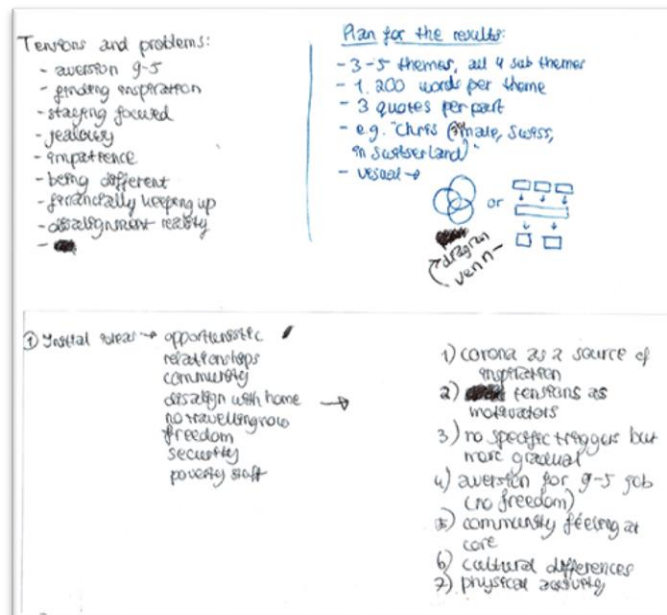 Tensions and problems:
- aversion 9-5
- finding inspiration
- staying focused
- jealousy
- impatience
- being different
- financially keeping up
- disalignment reality
-
Plan for the results:
- 3-5 themes, all 4 sub themes
- 1.200 words per theme
- 3 quotes per part
- e.g. "Chris (male, Swiss,
in Switserland)"
- visual →
or
diagram
venn-
① Initial ideas → opportunistic
relationships
community
disalign with home →
no travelling now
freedom
security
poverty stuff
1) corona as a source of
inspiration
2) tensions as
motivators
3) no specific triggers but
more gradual
4) aversion for 9-5 job
(no freedom)
5) community feeling at
core
6) cultural differences
7) physical activity